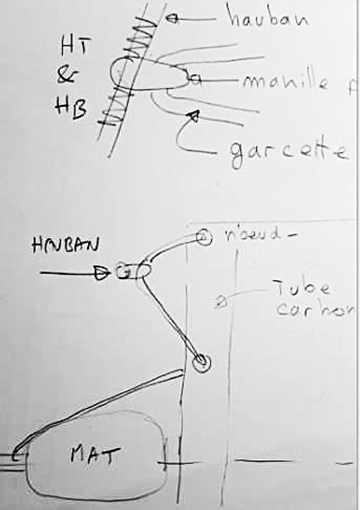 hauban
HT
&
HB
manille
garcette
HAUBAN
noeud-
Tube
carbon
MAT